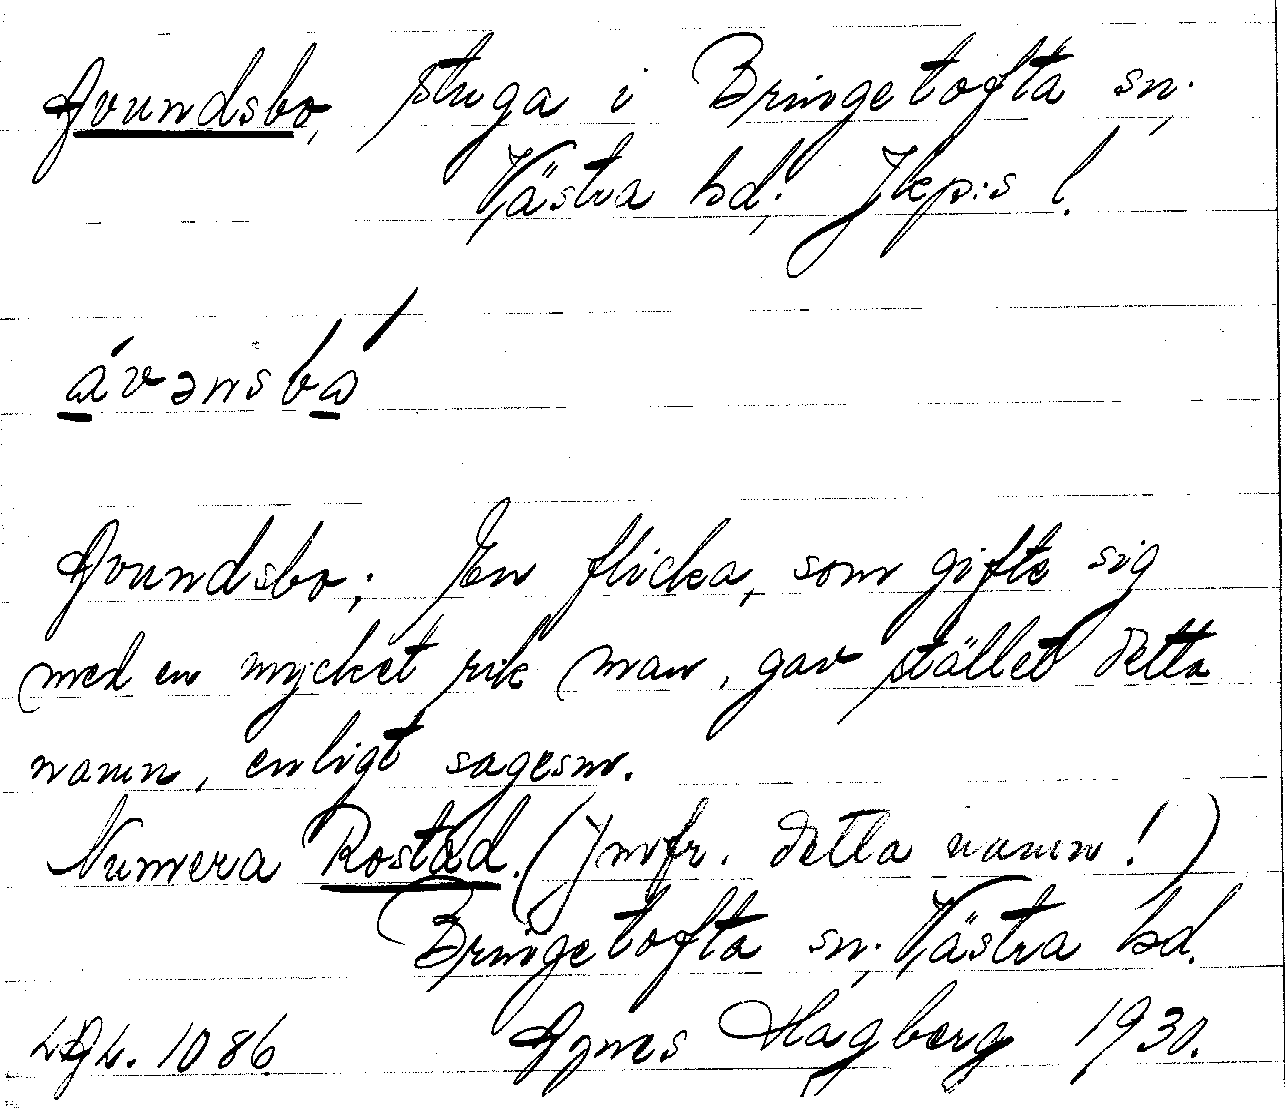 Avundsbo, stuga i Bringetofta sn;
Västra hd; Jkps: s l.
ávənsba
Avundsbo; En flicka, som gifte sig
med en mycket rik man, gav stället detta
namn, enligt sagesm.
Numera Rostad. (Jmfr. detta namn!)
Bringetofta sn; Västra hd.
1086 Agnes Hagberg 1930.